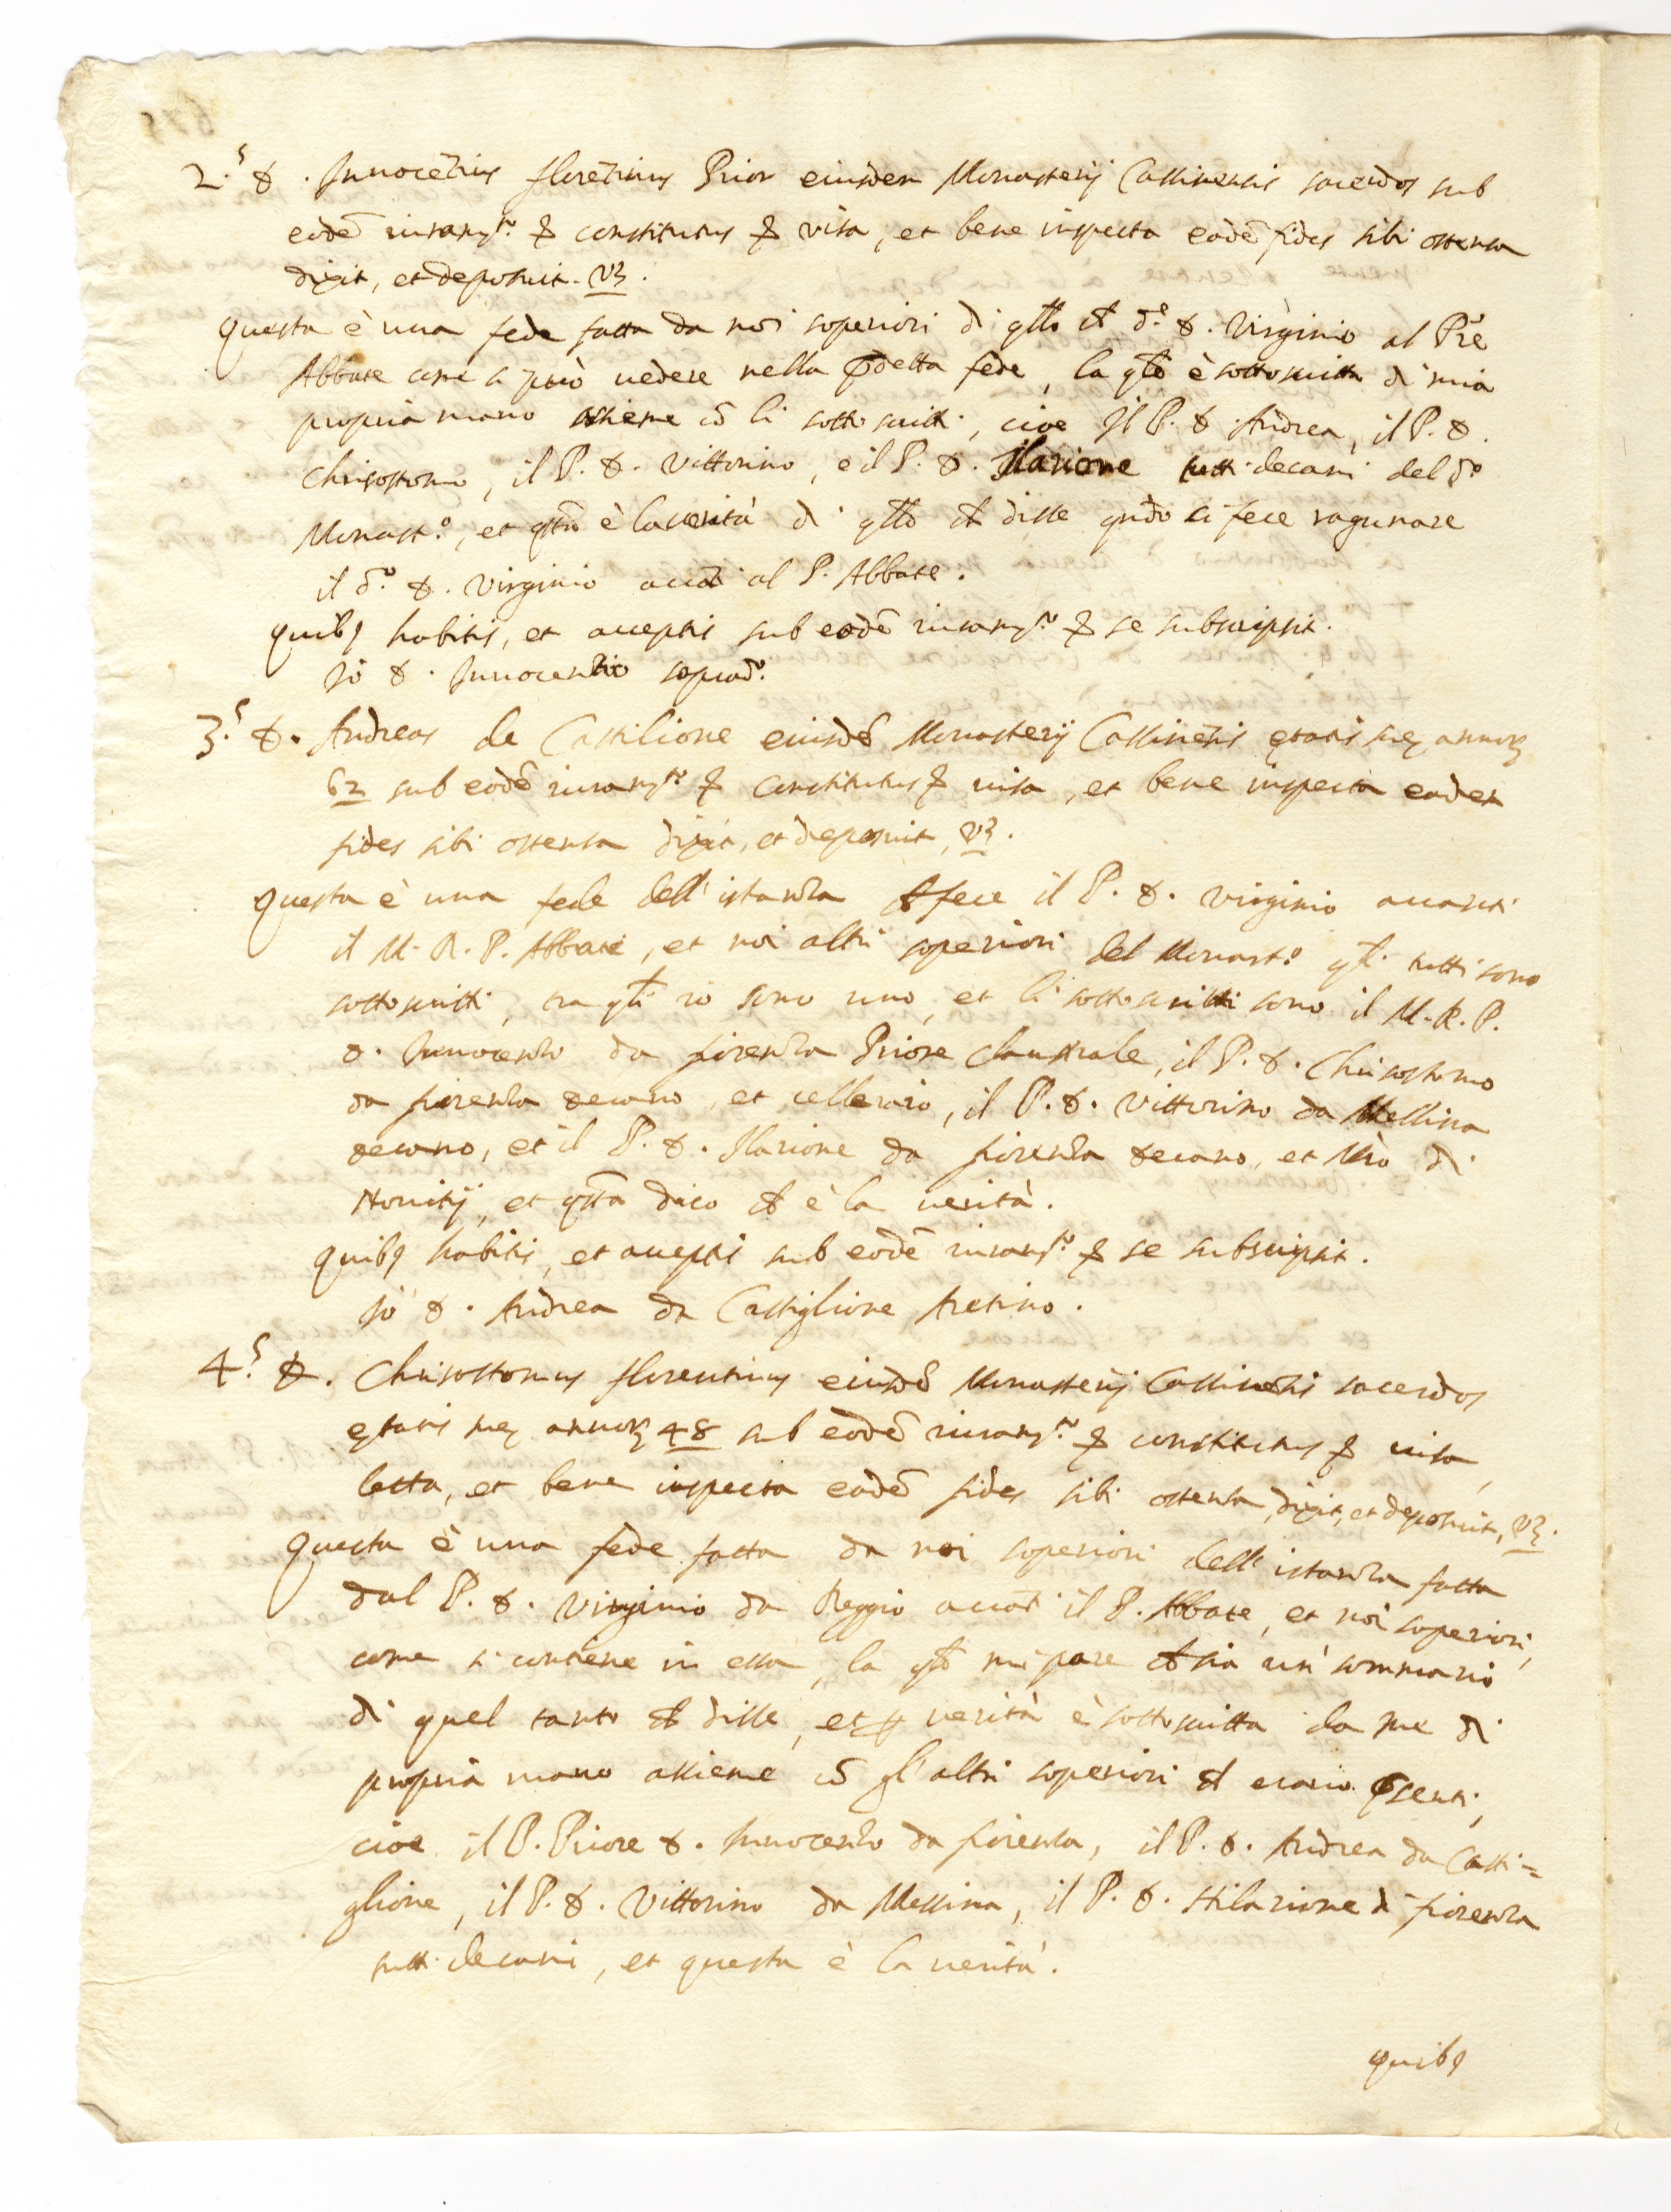 2.s D. Innocẽtius florẽtinus Prior eiusdem Monasterij Cassinensis sacerdos sub
eodẽ iuram.to & constitutus & visa, et bene inspecta eadẽ fides sibi ostensa
dixit, et deposuit. vz.
Questa è una fede fatta da noi soperiori di q̃llo ch̃ d.e D. Virginio al P̃re
Abbate come si può uedere nella p̃detta fede, la q̃le è sottoscritta di mia
propria mano assieme cõ li sottoscritti, cioe Il P. D. Andrea, il P. D.
Chrisostomo, il P. D. Vittorino, e il P. D. Ilarione tutti decani del d.o
Monast.o, et q̃sta è la uerità di q̃llo ch̃ disse q̃ndo ci fece ragunare
il d.o D. Virginio auãti al P. Abbate.
Quibq habitis, et acceptis sub eodẽ iuram.to & se subscripsit.
Io D. Innocentio soprad.o
3.s D. Andreas de Castilione eiusdẽ Monasterij Cassinẽsis ętatis suę annorz
62 sub eodẽ iuram.to & constitutus & uisa, et bene inspecta eadem
fides sibi ostensa dixit, et deposuit, vz.
Questa è una fede dell'istanza ch̃ fece il P. D. Virginio auanti
il M. R. P. Abbate, et noi altri soperiori del Monast.o q̃li tutti sono
sottoscritti, tra q̃li io sono uno, et li sottoscritti sono il M. R. P.
D. Innocenzo da fiorenza Priore Claustrale, il P. D. Chrisostomo
da fiorenza decano, et celleraro, il P. D. Vittorino da Messina
decano, et il P. D. Ilarione da fiorenza decano, et M̃ro di
Nouitij, et q̃sta dico ch̃ è la uerità.
Quibq habitis, et acceptis sub eodẽ iuram.to & se subscripsit.
Io D. Andrea da Castiglione Aretino.
4.s D. Chrisostomus florentinus eiusdẽ Monasterij Cassinẽsis sacerdos
ętatis suę annorz 48 sub eodẽ iuram.to & constitutus & uisa,
letta, et bene inspecta eadẽ fides sibi ostensa, dixit, et deposuit, vz.
Questa è una fede fatta da noi soperiori dell'istanza fatta
dal P. D. Virginio da Reggio auãti il P. Abbate, et noi soperiori,
come si contiene in essa, la q̃le mi pare ch̃ sia un' sommario
di quel tanto ch̃ disse, et p̱ uerità è sottoscritta da me di
propria mano assieme cõ gl'altri soperiori ch̃ erano p̃senti,
cioe il P. Priore D. Innocenzo da fiorenza, il P. D. Andrea da Casti=
glione, il P. D. Vittorino da Messina, il P. D. Hilarione di fiorenza
tutti decani, et questa è la uerità.
Quibq